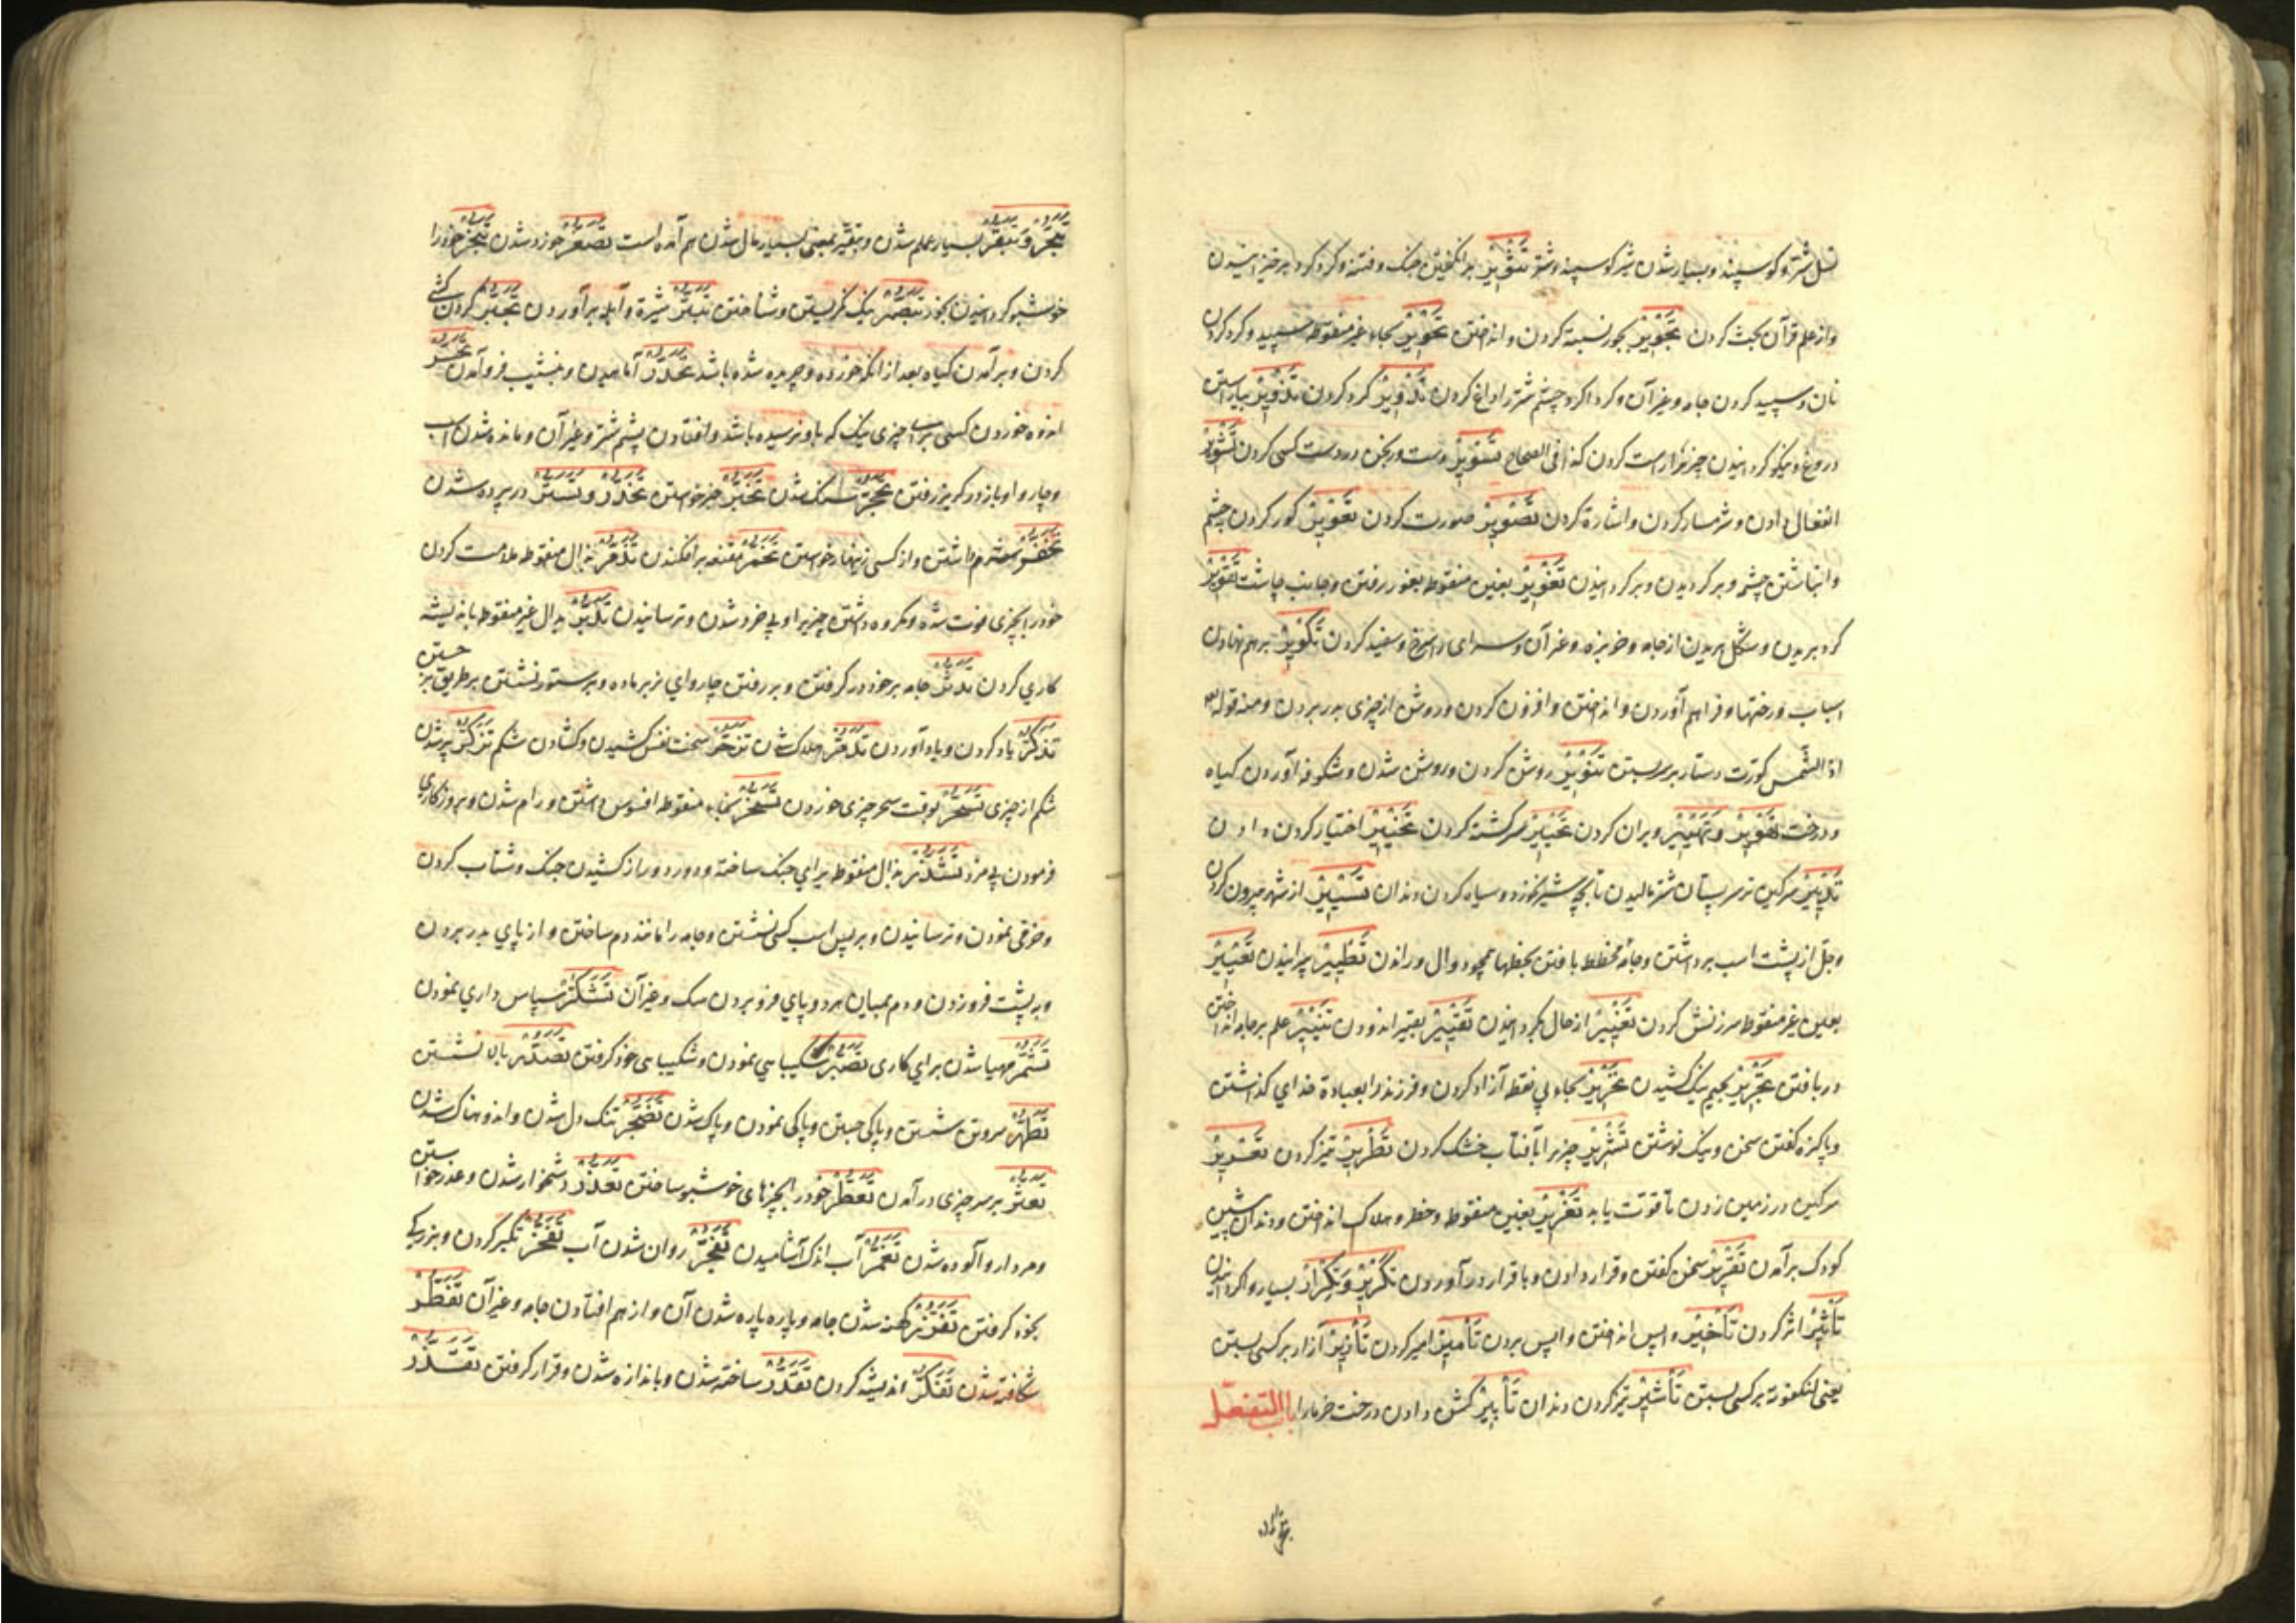 نسل شتر و کوسپند و بسیار شدن شیر کوسپند و شتر تَثْوِیْرْ برانکیختن جنک و فتنه و کرد کرد بر خیزانیدن
و از علم قرآن بحث کردن تَجْوِیْرْ بجور نسبة کردن و انداختن تَحْوِیْرْ بحاء غیر منقوطه سپید و کرد کردن
نان و سپید کردن جامه و غیر آن و کرداکرد چشم شتر را داغ کردن تَدْوِیْرْ کرد کردن تَزْوِیْرْ بیاراستن
دروغ و نیکو کردانیدن چیز را راست کردن کذا فی الصحاح تَسْوِیْرْ دست ورنجن در دست کسی کردن تَشْوِیْرْ
انفعال دادن و شرمسار کردن و اشارة کردن تَصْوِیْرْ صورت کردن تَعْوِیْرْ کور کردن چشم
و انباشتن چشمه و بر کردیدن و بر کردانیدن تَغْوِیْرْ بغین منقوطه بغور رفتن و جانب چاشت تَقْوِیْرْ
کرد بریدن و شکل بریدن از جامه و خربزه و غیر آن و سرای را سرخ و سفید کردن تَکْوِیْرْ بر هم نهادن
اسباب و رختها و فراهم آوردن و انداختن و افزون کردن و روش از چیزی بدر بردن و منه قوله
اذا الشمس کورت دستار بر سر بستن تَنْوِیْرْ روشن کردن و روشن شدن و شکوفه آوردن کیاه
و درخت تَهْوِیْرْ و تَهْیِیْرْ ویران کردن تَحْیِیْرْ سرکشته کردن تَخْیِیْرْ اختیار کردن دادن
سرکین تر سر پستان شتر مالیدن تا بچه شیر نخورد و سیاه کردن دندان تَسْیِیْرْ از شهر بیرون کردن
و جل از پشت اسب برداشتن و جامه مخطط بافتن بخطها همچو دوال و راندن تَطْیِیْرْ پرانیدن تَعْیِیْرْ
بعین غیر منقوطه سرزنش کردن تَغْیِیْرْ از حال بکردانیدن تَقْیِیْرْ بقیر اندودن تَنْیِیْرْ علم بر جامه انداختن
در بافتن تَجْرِیْرْ بجیم نیک کشیدن تَحْرِیْرْ بحاء بی نقطه آزاد کردن و فرزند را بعبادة خدای کذاشتن
و پاکیزه کفتن سخن و نیک نوشتن تَشْرِیْرْ چیز را بآفتاب خشک کردن تَطْرِیْرْ تیز کردن تَعْرِیْرْ
سرکین در زمین زدن تا قوت یابد تَغْرِیْرْ بغین منقوطه و خطر و هلاک انداختن و دندان پیشین
کودک بر آمدن تَقْرِیْرْ سخن کفتن و قرار دادن و باقرار در آوردن تَکْرِیْرْ و تَکْرَارْ بسیار واکردانیدن
تَأثِیْرْ اثر کردن تَأخِیْرْ واپس انداختن و واپس بردن تَأمِیْرْ امیر کردن تَأزِیْرْ آزار بر کسی بستن
یعنی لنکفوته بر کسی بستن تَأشِیْرْ تیز کردن دندان تَأبِیْرْ کشن دادن درخت خرما را باب التفعّل
تَبَحُّرْ و تَبَقُّرْ بسیار علم شدن و تبقر بمعنی بسیار مال شدن هم آمده است تَصَعُّرْ خورد شدن تَبَخُّرْ خود را
خوشبو کردانیدن بخور تَبَصُّرْ نیک نکریستن و شناختن تَبَثُّرْ بثرة و آبله بر آوردن تَجَبُّرْ کردن کشی
کردن و بر آمدن کیاه بعد از آنکه خورده و چریده شده باشد تَحَدُّرْ آمامیدن و بنشیب فرو آمدن تَحَسُّرْ
اندوه خوردن کسی برای چیزی نیک که باو نرسیده باشد و افتادن پشم شتر و غیر آن و مانده شدن اسب
و چاروا و باز در کریز رفتن تَحَجُّرْ سنک شدن تَخَبُّرْ خبر خواستن تَخَدُّرْ و تَسَتُّرْ در پرده شدن
تَخَفُّرْ شرم داشتن و از کسی زینهار خواستن تَخَمُّرْ مقنعه بر افکندن تَذَمُّرْ بذال منقوطه ملامت کردن
خود را بچیزی فوت شده و مکروه داشتن چیزی را و بی خرد شدن و ترسانیدن تَدَبُّرْ بدال غیر منقوطه باندیشه
کاری کردن تَدَثُّرْ جامه بر خود در کرفتن و بر رفتن چاروای نر بر ماده و بر ستور نشستن بر طریق بر جستن
تَذَکُّرْ یاد کردن و بیاد آوردن تَدَمُّرْ هلاک شدن تَزَحُّرْ سخت نفس کشیدن و کشادن شکم تَزَکُّرْ پر شدن
شکم از چیزی تَسَحُّرْ بوقت سحر چیزی خوردن تَسَخُّرْ بخاء منقوطه افسوس داشتن و رام شدن و بروز کاری
فرمودن بی مزد تَشَذُّرْ بذال منقوطه برای جنک ساخته و دور دور از کشیدن جنک و شتاب کردن
و خوفی نمودن و ترسانیدن و بر پس اسب کسی نشستن و جامه را مانند دم ساختن و از پای بدر بردن
و بر پشت فرو زدن و دم بمیان هر دو پای فرو بردن سک و غیر آن تَشَکُّرْ سپاس داری نمودن
تَشَمُّرْ مهیا شدن برای کاری تَصَبُّرْ شکیبایی نمودن و شکیبایی خود کرفتن تَصَدُّرْ بالا نشستن
تَطَهُّرْ سر و تن شستن و پاکی جستن و پاکی نمودن و پاک شدن تَضَجُّرْ تنک دل شدن و اندوهناک شدن
تَعَثُّرْ بر سر چیزی در آمدن تَعَطُّرْ خود را بچیزهای خوشبو ساختن تَعَذُّرْ دشخوار شدن و عذر خواستن
و مردار و آلوده شدن تَغَمُّرْ آب اندک آشامیدن تَفَجُّرْ روان شدن آب تَفَخُّرْ تکبر کردن و بزرکی
بخود کرفتن تَفَزُّرْ کهنه شدن جامه و پاره پاره شدن آن و از هم افتادن جامه و غیر آن تَفَطُّرْ
شکافته شدن تَفَکُّرْ اندیشه کردن تَقَدُّرْ ساخته شدن و باندازه شدن و قرار کرفتن تَقَذُّرْ